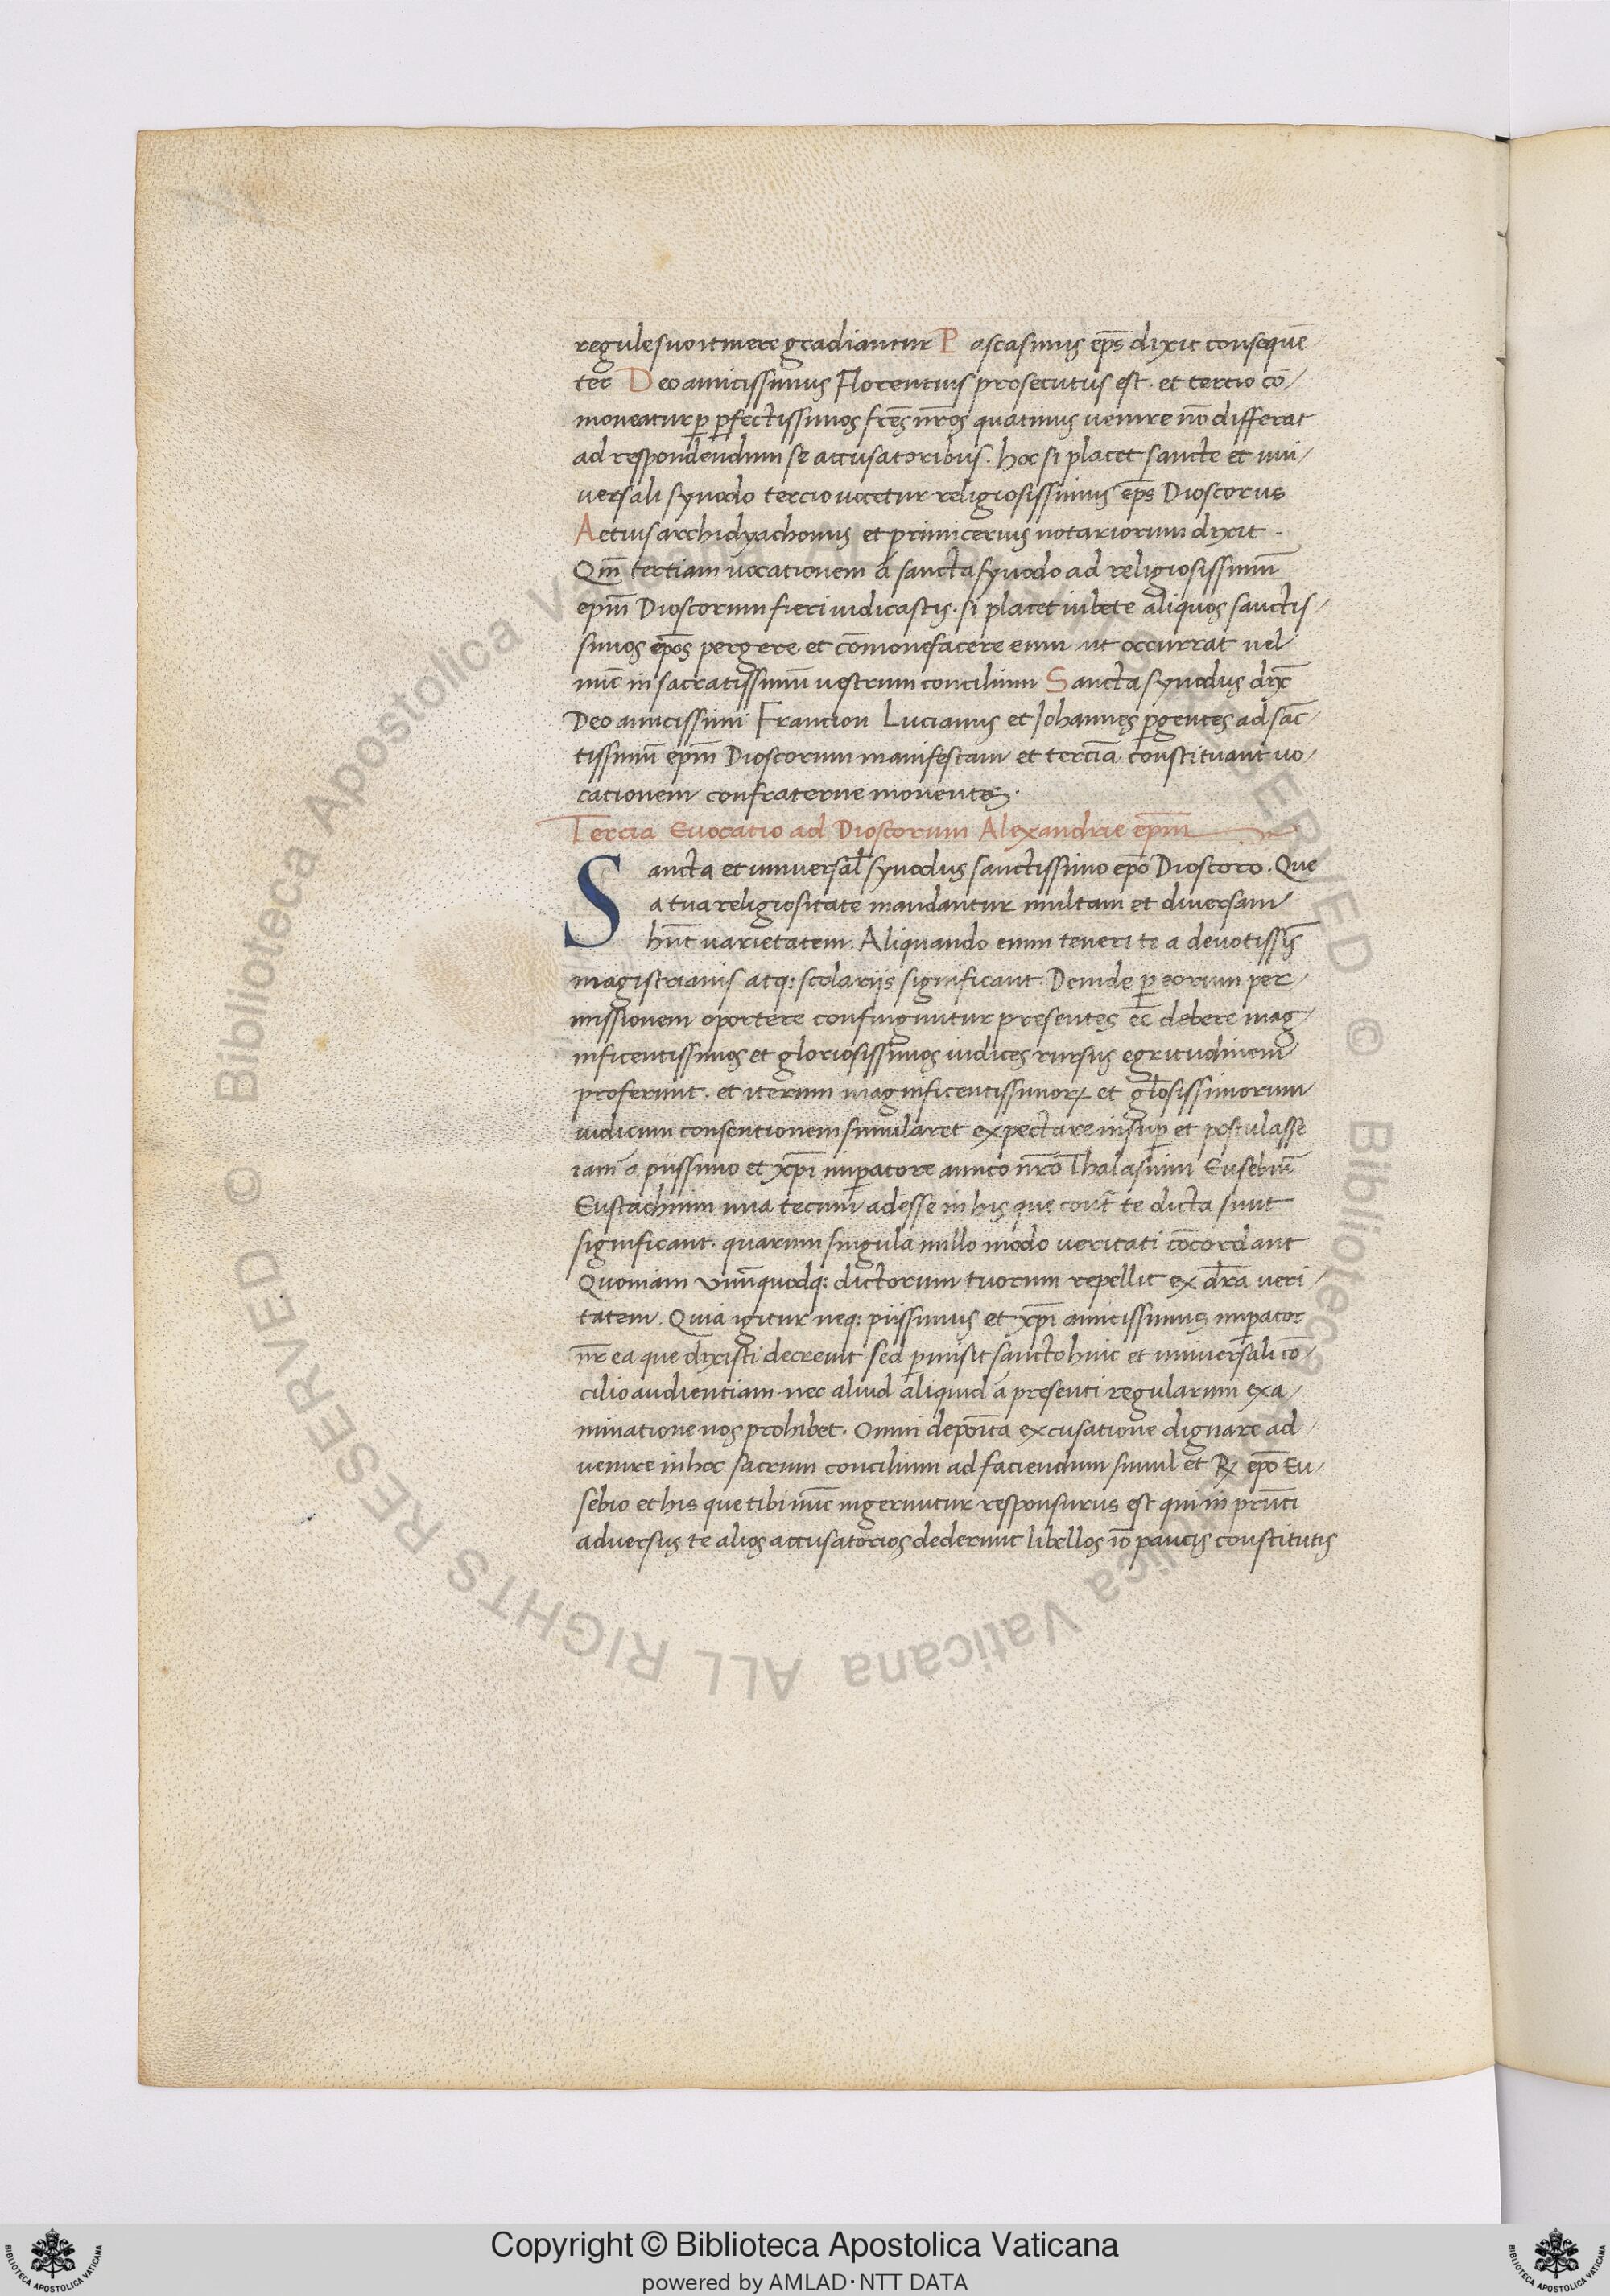 regule suo itinere gradiantur Pascasinus ep̄s dixit conseque̅
ter Deo amicissimus Florentius prosecutus est . et tercio co̅/
moneatur p̱ p̱fectissimos fr̄es nr̄os quatinus uenire no̅ differat
ad respondendum se accusatoribus . hoc si placet sancte et uni/
uersali synodo tercio uocetur religiosissimus ep̄s Dioscorus
Aetius archidyachonus et primicerius notariorum dixit .
Qm̅ tertiam uocationem a sancta synodo ad religiosissimu̅
epm̅ Dioscorum fieri iudicastis . si placet iubete aliquos sanctis/
simos ep̄os pergere et co̅monefacere eum ut occurrat uel
nu̅c in sacratissimu̅ uestrum concilium Sancta synodus dix̅
Deo amicissimi Francion Lucianus et Johannes p̱gentes ad sa̅c/
tissimu̅ epm̅ Dioscorum manifestam et tercia̅ constituant uo/
cationem confraterne monentes .
Tercia Euocatio ad Dioscorum Alexandrie epm̅
Sancta et uniuersal̅ synodus sanctissimo ep̄o Dioscoro . Que
a tua religiositate mandantur multam et diuersam
hn̅t uarietatem . Aliquando enim teneri te a deuotissis̅
magistrianis atq: scolariis significant . Deinde p̱ eorum per/
missionem oportere confinguntur presentes ee̅ debere mag/
nificentissimos et gloriosissimos iudices rursus egritudinem
proferunt . et iterum magnificentissimoꝝ et gl̅osissimorum
iudicum consentionem simularet expectare insup̱ et postulasse
iam a piissimo et xp̄i imp̱atore amico nr̄o Thalasium Eusebiu̅
Eustachium una tecum adesse in his que cont̅ te dicta sunt
significant . quarum singula nullo modo ueritati co̅cordant
Quoniam Unu̅quodq: dictorum tuorum repellit ex d̅ra ueri/
tatem . Quia igitur neq: piissimus et xp̄i amicissimus imp̱ator
nr̄ ea que dixisti decreuit . sed p̱misit sancto huic et uniuersali co̅/
cilio audientiam . nec aliud aliquid a presenti regularum exa/
minatione nos prohibet . Omni depo̅ita excusatione dignare ad/
uenire in hoc sacrum concilium ad faciendum simul et ep̄o Eu/
sebio et his que tibi nu̅c ingeruntur responsurus est qui in pru̅ti
aduersus te alios accusatorios dederunt libellos io̅ paucis constitutis
Copyright © Biblioteca Apostolica Vaticana
powered by AMLAD·NTT DATA